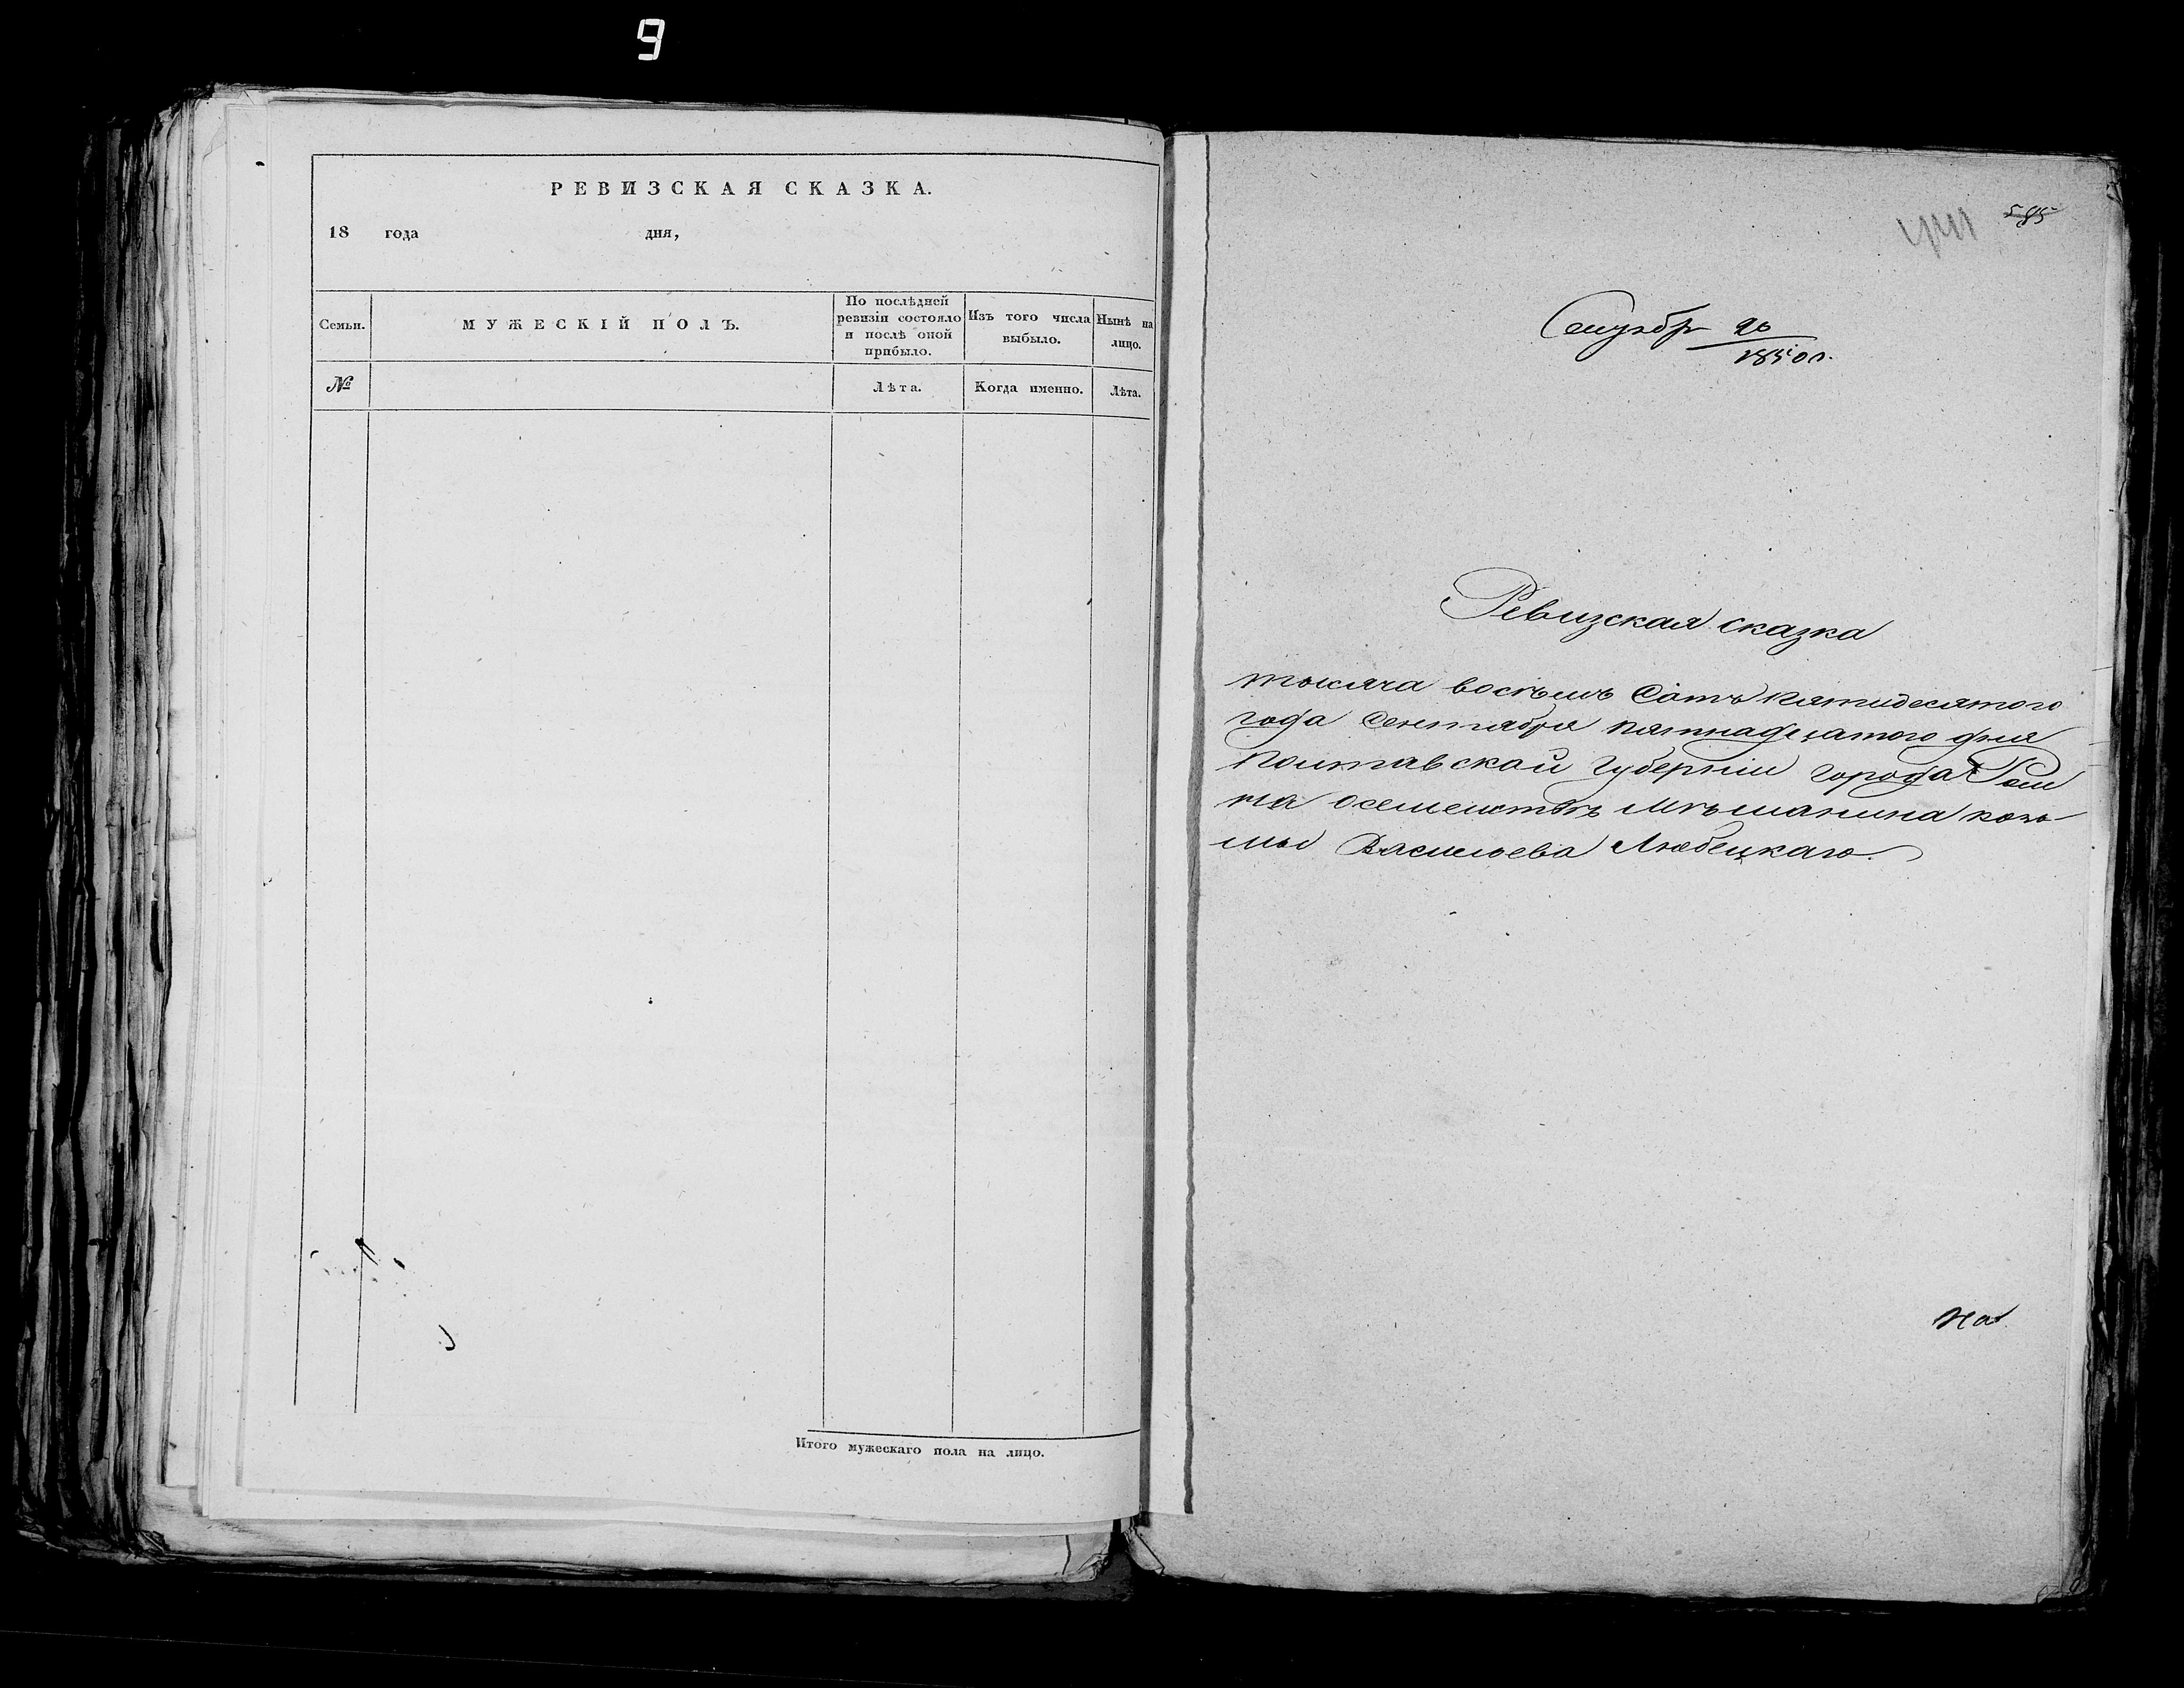 9
РЕВИЗСКАЯ СКАЗКА.
18 года дня,
Семьи.
МУЖЕСКІЙ ПОЛЪ.
По послѣдней
ревизіи состояло
и послѣ оной
прибыло.
Изъ того числа
выбыло.
Нынѣ на
лицо.
№
Лѣта.
Когда именно.
Лѣта.
Итого мужескаго пола на лицо.
585
20
1850 г.
Ревизская сказка
тысяча восѣмь сотъ пятидесятого
года Сентября пятнадецатого дня
Полтавской Губерніи города Ром
на осемействѣ Мѣшанина козь
мы Васильева Любецкаго.
На